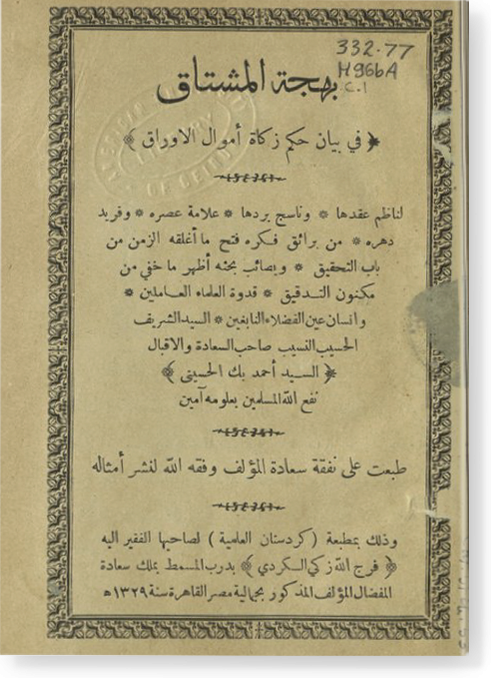 332.77
H96bA
C.1
بهجة المشتاق
﴿ في بيان حكم زكاة أموال الاوراق ﴾
لناظم عقدها * وناسج بردها * علامة عصره * وفريد
دهره * من برائق فكره فتح ما أغلقه الزمن من
باب التحقيق * وبصائب بحثه أظهر ما خفي من
مكنون التدقيق * قدوة العلماء العاملين *
وانسان عين الفضلاء النابغين * السيد الشريف
الحسيب النسيب صاحب السعادة والاقبال
﴿ السيد أحمد بك الحسيني ﴾
نفع الله المسلمين بعلومه آمين
طبعت على نفقة سعادة المؤلف وفقه الله لنشر أمثاله
وذلك بمطبعة ( كردستان العلمية ) لصاحبها الفقير اليه
﴿ فرج الله زكي الكردي ﴾ بدرب المسمط بملك سعادة
المفضال المؤلف المذكور بجمالية مصر القاهرة سنة ١٣٢٩ ه